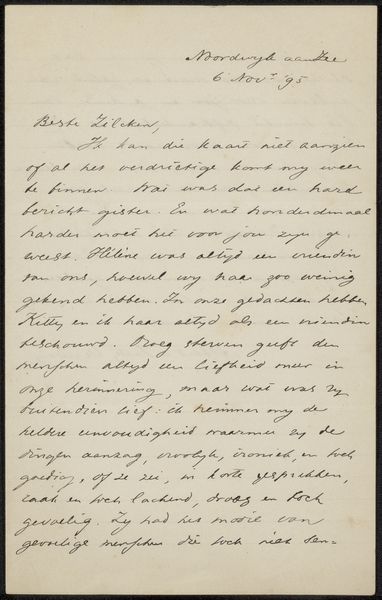 Noordwijk aan Zee
6 Nov.r '95
Beste Zilcken,
Ik kan die kaart niet aanzien
of al het verdrietige komt my weer
te binnen. Wat was dat een hard
bericht gister. En wat honderdmaal
harder moet het voor jou zyn ge-
weest. Hélène was altyd een vriendin
van ons, hoewel wy haar zoo weinig
gekend hebben. In onze gedachten hebben
Ketty en ik haar altyd als een vriendin
beschouwd. Vroeg sterven geeft den
menschen altyd een liefheid meer in
onze herinnering, maar wat was zy
buitendien lief: ik herinner my de
heldere eenvoudigheid waarmee zy de
dingen aanzag, vroolyk, ironiek, en toch
goedig, of ze zei, in korte gesprekken,
vaak en toch lachend, droog en toch
gevoelig. Zy had het mooie van
gevoelige menschen die toch niet sen-